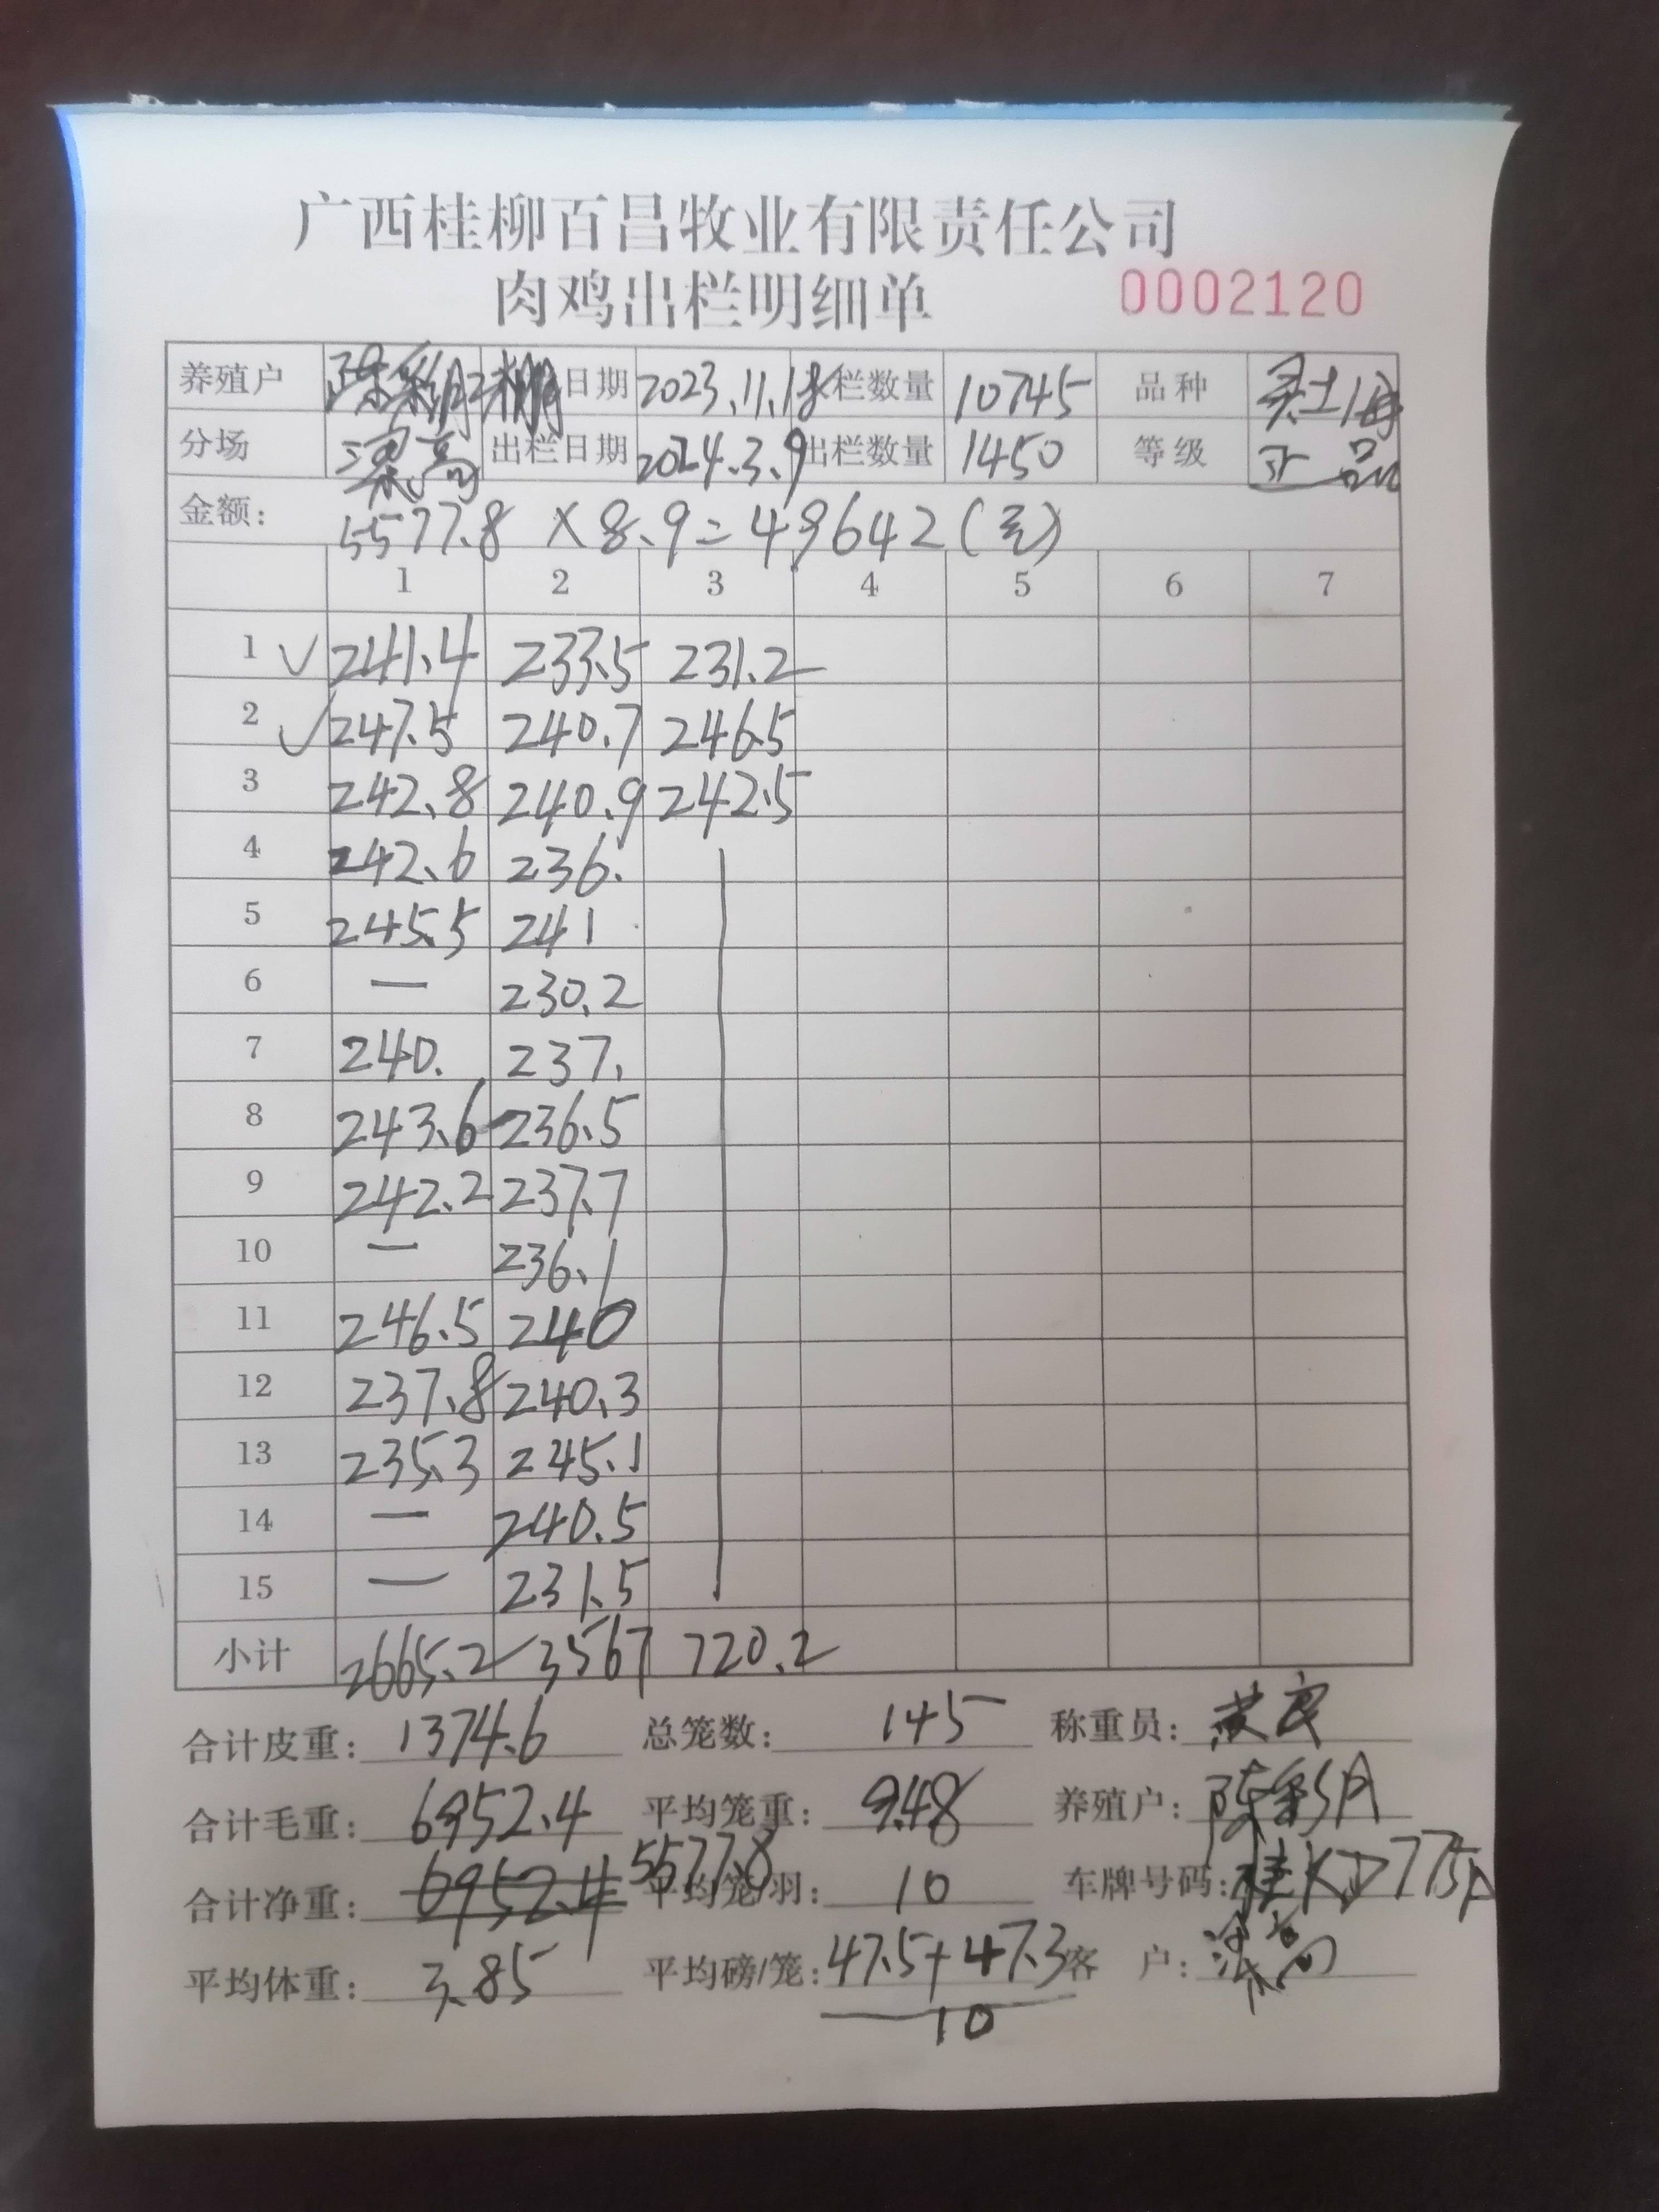 广西桂柳百昌牧业有限责任公司
肉鸡出栏明细单 0002120
养殖户 陈彩 日期 2023.11.18 栏数量 10745 品种 土
分场 梁高 出栏日期 2024.3.9 出栏数量 1450 等级 正品
金额: 5577.8 × 8.9 = 49642(元)
1 2 3 4 5 6 7
1 ✓ 241.4 233.5 231.2
2 ✓ 247.5 240.7 246.5
3 242.8 240.9 242.5
4 242.6 236.
5 245.5 241
6 — 230.2
7 240. 237.
8 243.6 236.5
9 242.2 237.7
10 — 236.1
11 246.5 240
12 237.8 240.3
13 235.3 245.1
14 — 240.5
15 — 231.5
小计 2665.2 3567 720.2
合计皮重: 1374.6 总笼数: 145 称重员:
合计毛重: 6952.4 平均笼重: 9.48 养殖户: 陈彩
合计净重: 6952.4 5577.8 平均笼/羽: 10 车牌号码: 桂KD775
平均体重: 3.85 平均磅/笼: 47.5+47.3 客 户: 梁高
10